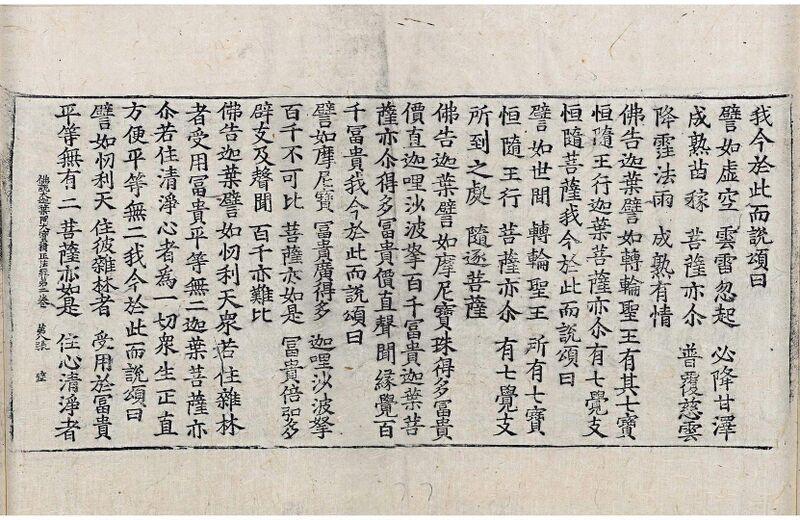 我今於此而説頌曰
譬如虛空 雲雷忽起 必降甘澤
成熟苗稼 菩薩亦尒 普覆慈雲
降霔法雨 成熟有情
佛告迦葉譬如轉輪聖王有其七寶
恒隨王行迦葉菩薩亦尒有七覺支
恒隨菩薩我今於此而説頌曰
譬如世間 轉輪聖王 所有七寶
恒隨王行 菩薩亦尒 有七覺支
所到之處 隨逐菩薩
佛告迦葉譬如摩尼寶珠得多冨貴
價直迦哩沙波拏百千冨貴迦葉菩
薩亦尒得多冨貴價直聲聞緣覺百
千冨貴我今於此而説頌曰
譬如摩尼寶 冨貴廣得多 迦哩沙波拏
百千不可比 菩薩亦如是 冨貴倍弘多
辟支及聲聞 百千亦難比
佛告迦葉譬如忉利天衆若住雜林
者受用冨貴平等無二迦葉菩薩亦
尒若住清淨心者為一切衆生正直
方便平等無二我今於此而説頌曰
譬如忉利天 住彼雜林者 受用於冨貴
平等無有二 菩薩亦如是 住心清淨者
佛説大迦葉問大寶積正法經第二卷 第八張